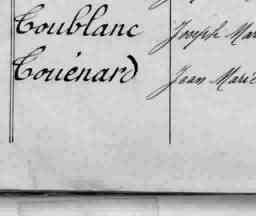 Toublanc Joseph Mar
Touénard Jean Marie